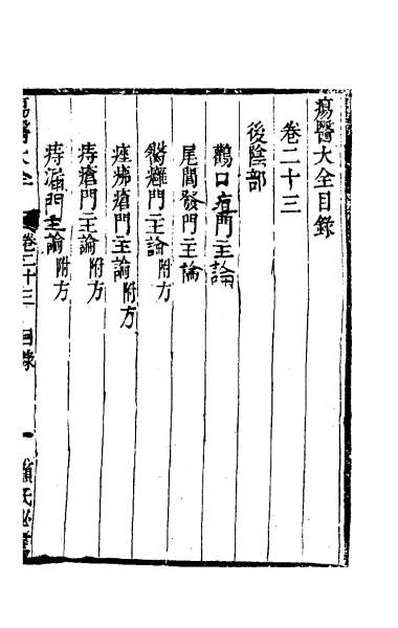 瘍醫大全目錄
卷二十三
後陰部
鸛口疽門主論
尾閭發門主論
臀癰門主論附方
痤疿瘡門主論附方
痔瘡門主論附方
痔漏門主論附方
瘍醫大全
卷二十三 目錄
一
顧氏秘書